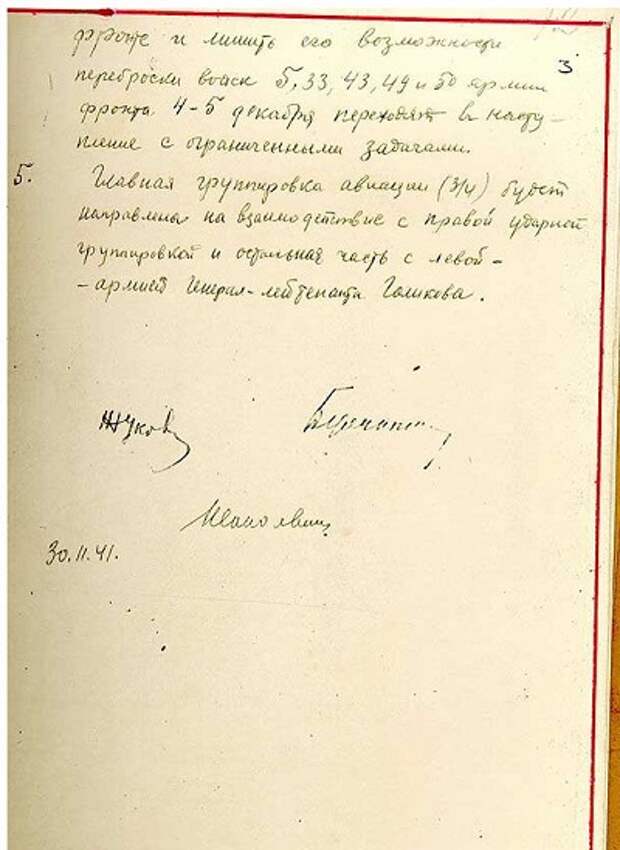 3
фронте и лишить его возможности
переброски войск 5, 33, 43, 49 и 50 армии
фронта 4-5 декабря переходят в насту-
пление с ограниченными задачами.
5. Главная группировка авиации (3/4) будет
направлена на взаимодействие с правой ударной
группировкой и остальная часть с левой-
-армией Генерал-лейтенанта Голикова.
Жуков Булганин
30.11.41.